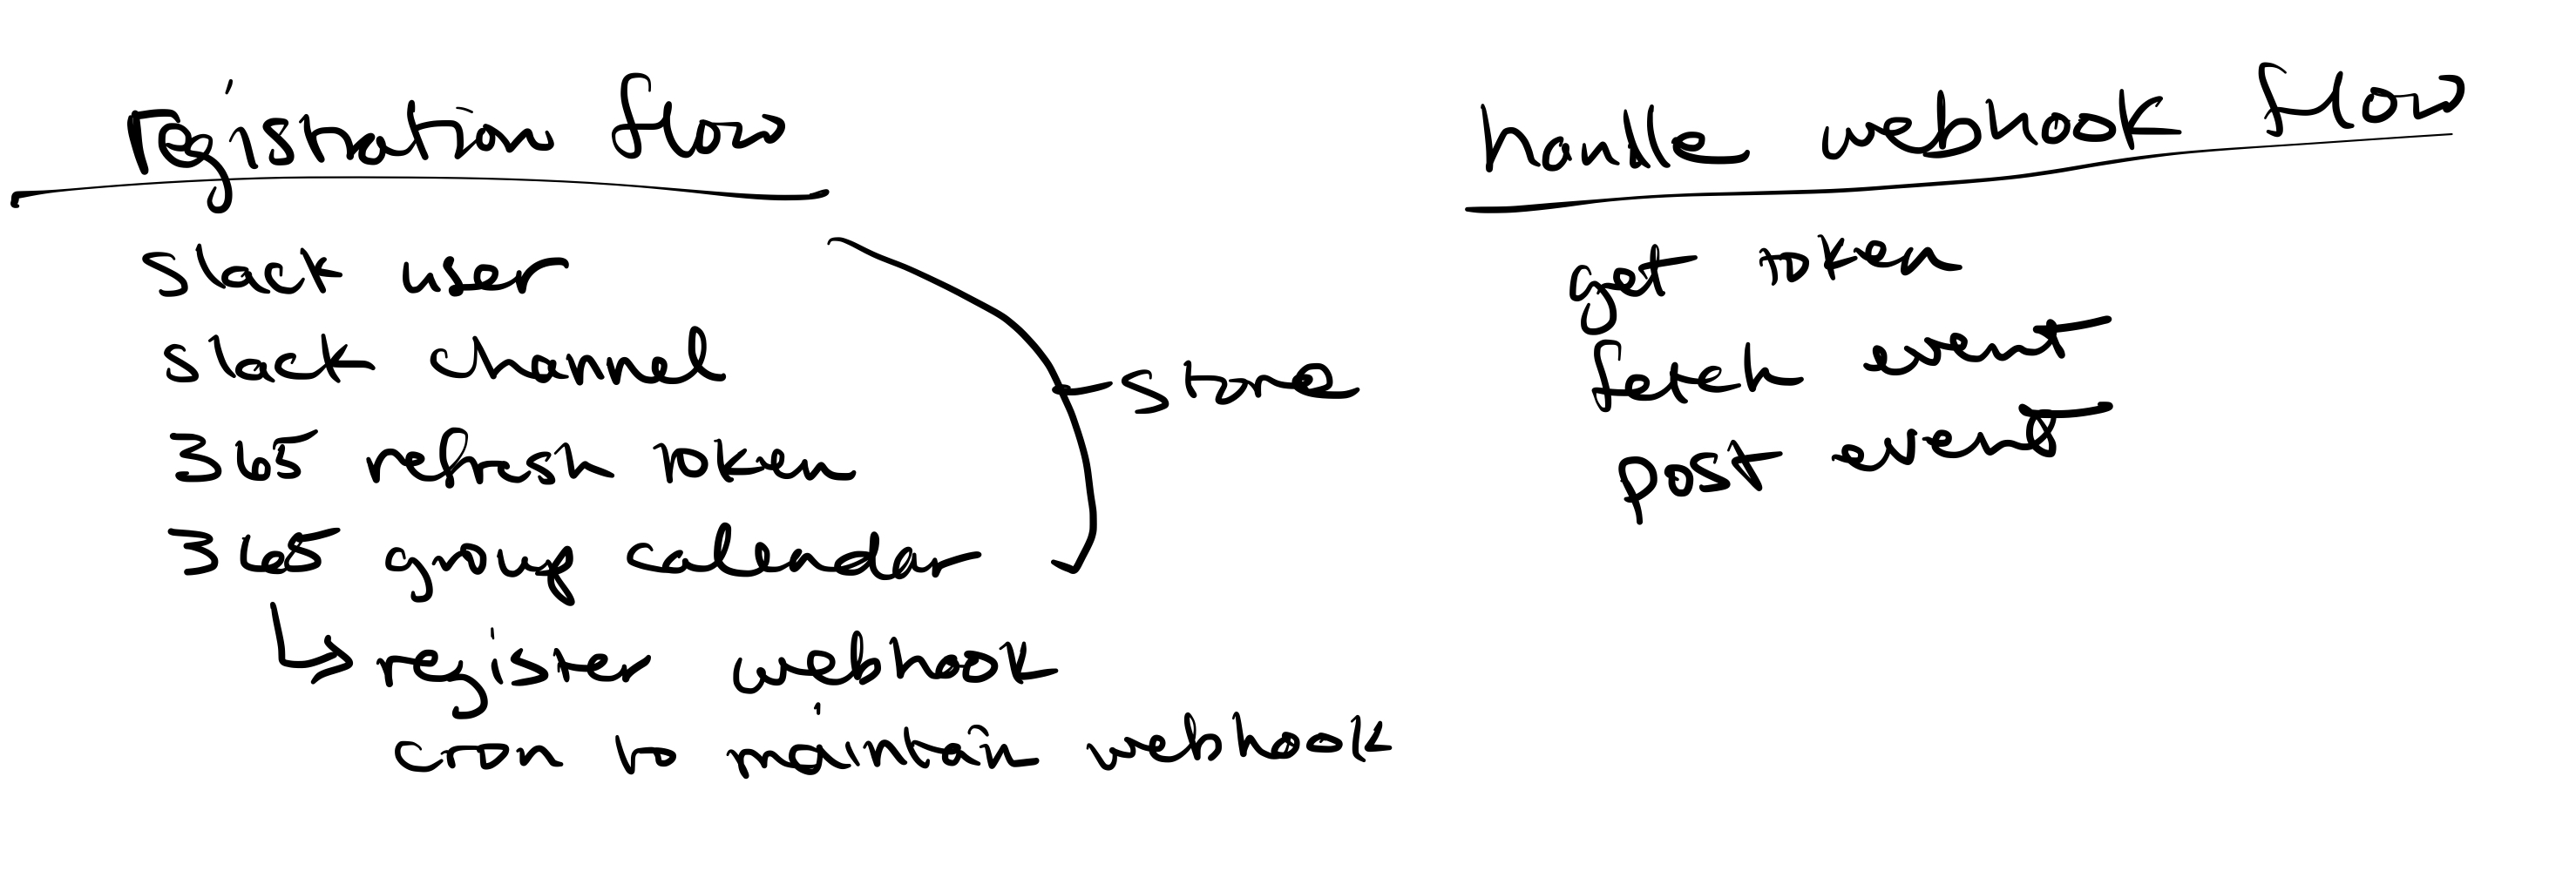 registration flow
slack user
slack channel
365 refresh token
365 group calendar
store
register webhook
cron to maintain webhook
handle webhook flow
get token
fetch event
post event